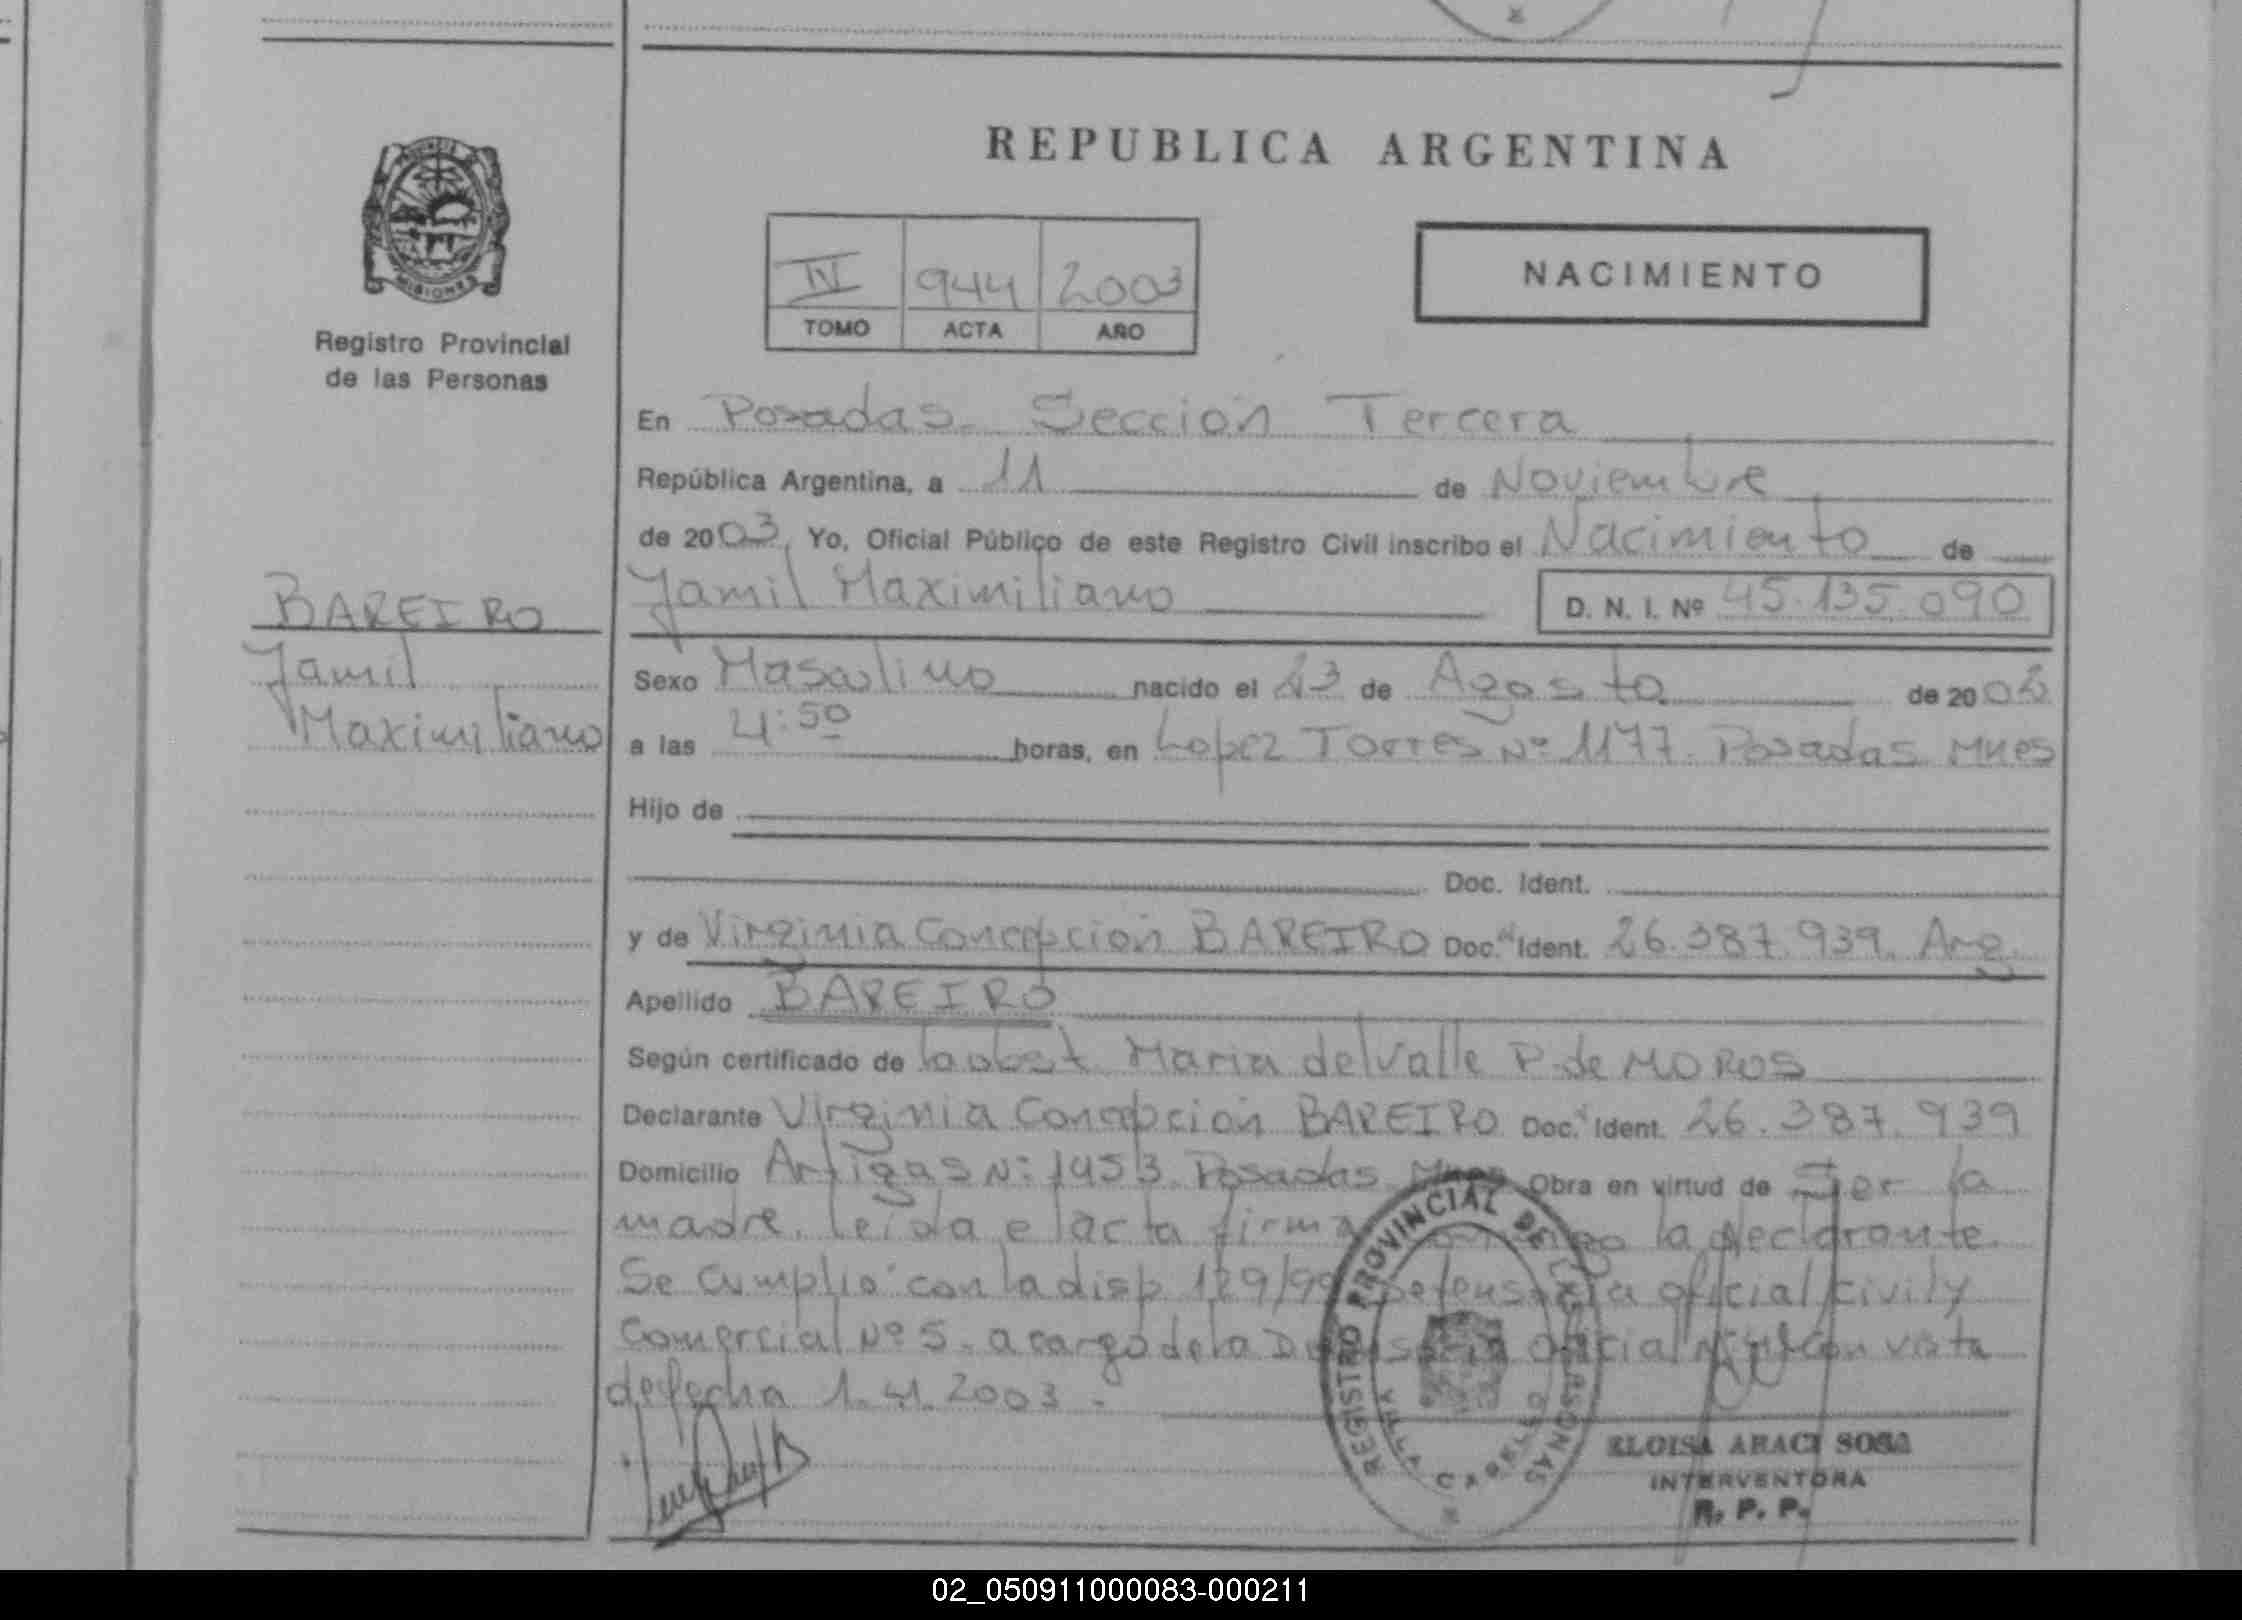 REPUBLICA ARGENTINA
PROVINCIA
MISIONES
Registro Provincial
de las Personas
IV 944 2003
TOMO ACTA AÑO
NACIMIENTO
En Posadas. Sección Tercera
República Argentina, a 11 de Noviembre
de 2003, Yo, Oficial Público de este Registro Civil inscribo el Nacimiento de
Jamil Maximiliano D. N. I. Nº 45.135.090
BAREIRO
Jamil
Maximiliano
Sexo Masculino nacido el 23 de Agosto de 2002
a las 4:50 horas, en Lopez Torres Nº 1177. Posadas Mnes
Hijo de
Doc. Ident.
y de Virginia Concepción BAREIRO Doc. Ident. 26.387.939. Arg.
Apellido BAREIRO
Según certificado de la obst. Maria del Valle P. de MOROS
Declarante Virginia Concepción BAREIRO Doc. Ident. 26.387.939
Domicilio Artigas Nº 1453 Posadas Mnes Obra en virtud de Ser la
madre. leida e lacta firma la declarante.
Se cumplió con la disp 129/99 Defensoria oficial civil y
Comercial Nº 5. a cargo de la Defensoria oficial con vista
de fecha 1.4.2003.-
REGISTRO PROVINCIAL DE LAS PERSONAS
VILLA CABELLO
ELOISA ARACI SOSA
INTERVENTORA
R. P. P.
02_050911000083-000211